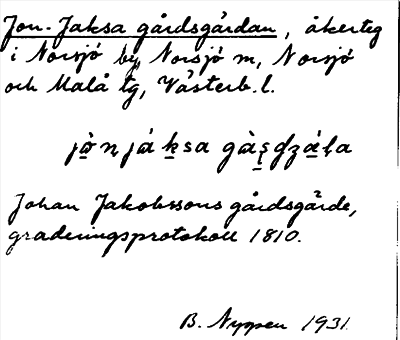 Jon-Jaksa gårdsgårdan, åkerteg
i Norsjö by, Norsjö m, Norsjö
och Malå tg, Västerb. l.
Johan Jakobssons gårdsgärde,
graderingsprotokoll 1810.
B. Nygren 1931.